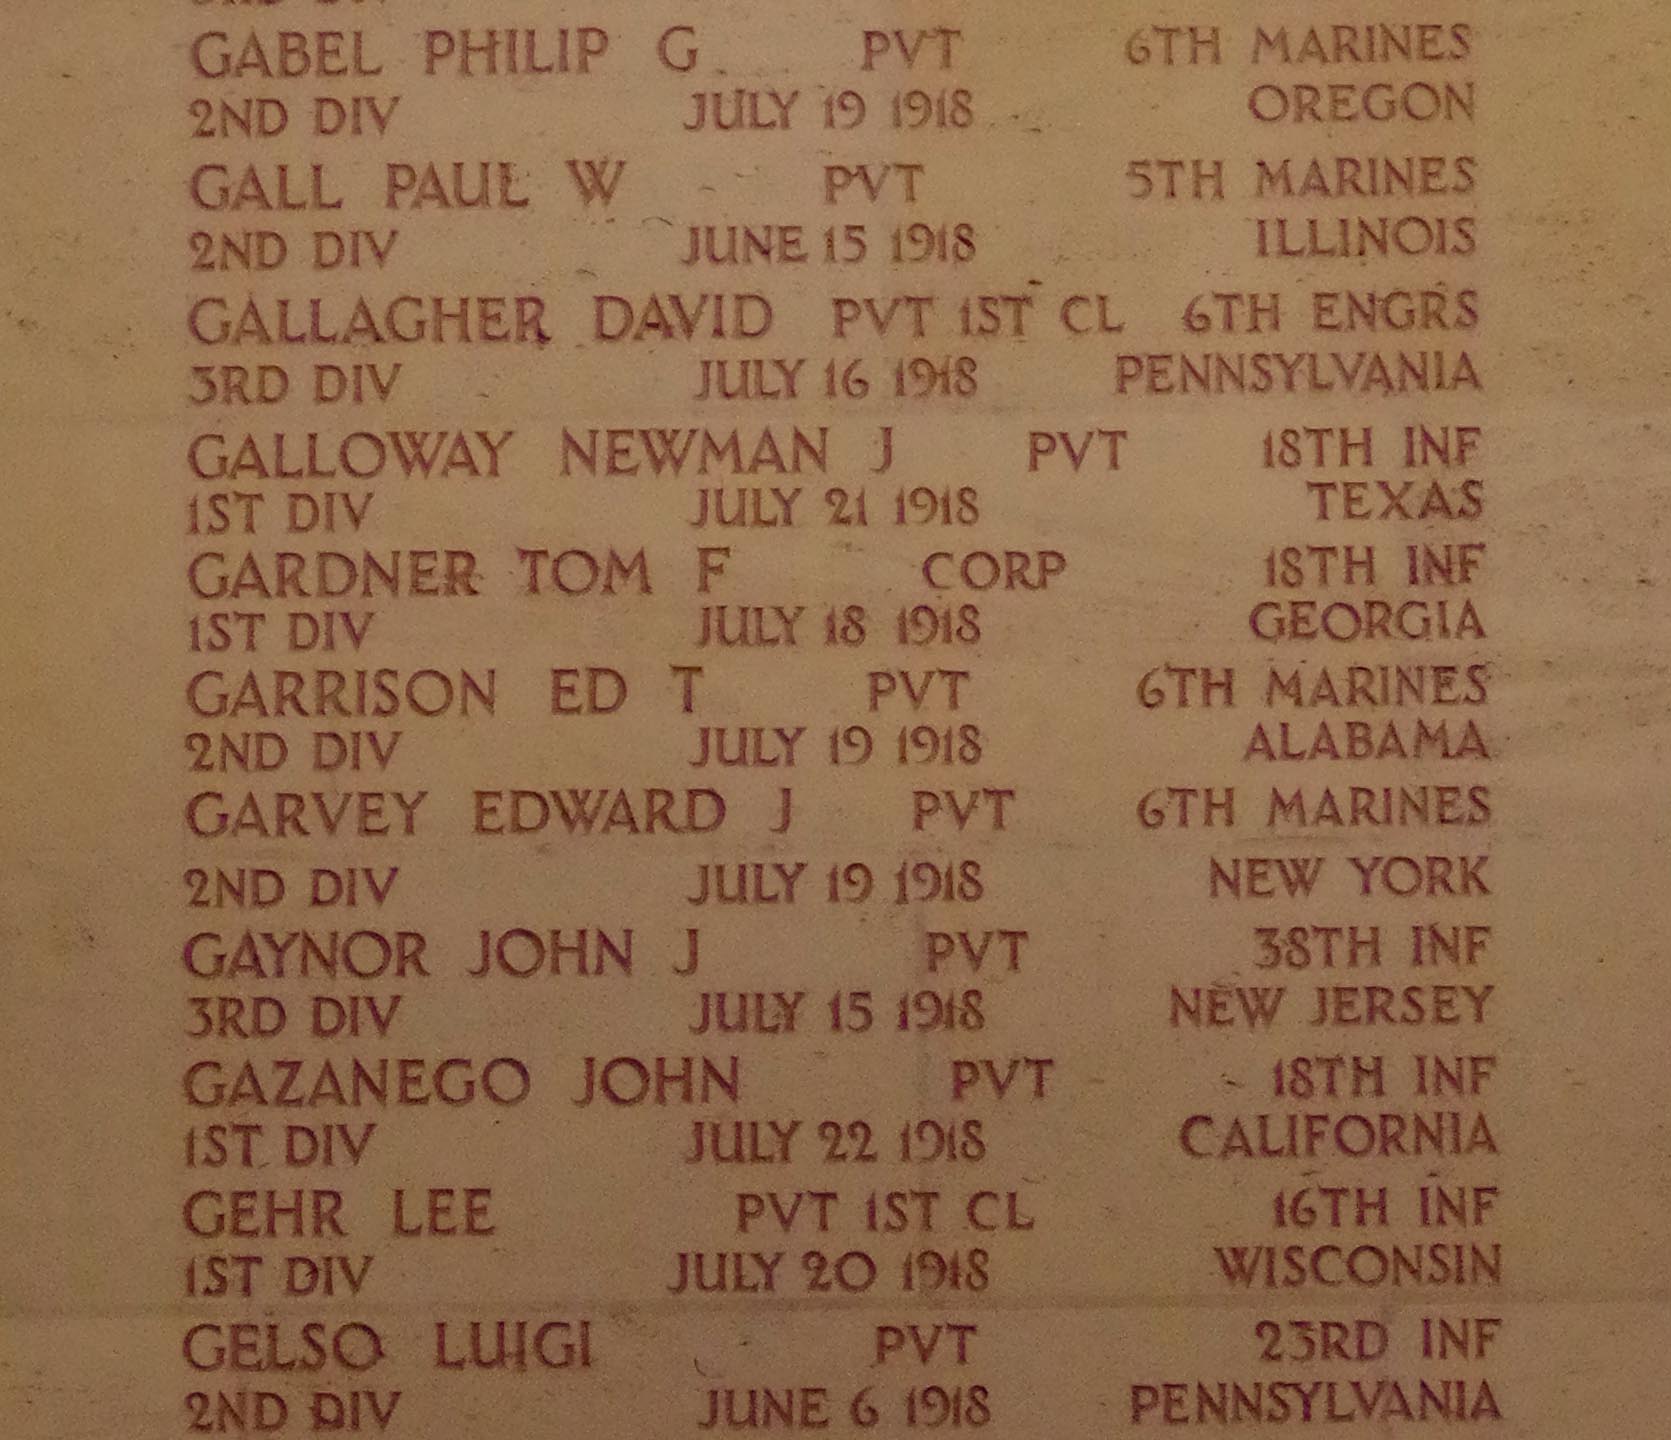 3RD DIV
GABEL PHILIP G PVT 6TH MARINES
2ND DIV JULY 19 1918 OREGON
GALL PAUL W PVT 5TH MARINES
2ND DIV JUNE 15 1918 ILLINOIS
GALLAGHER DAVID PVT 1ST CL 6TH ENGRS
3RD DIV JULY 16 1918 PENNSYLVANIA
GALLOWAY NEWMAN J PVT 18TH INF
1ST DIV JULY 21 1918 TEXAS
GARDNER TOM F CORP 18TH INF
1ST DIV JULY 18 1918 GEORGIA
GARRISON ED T PVT 6TH MARINES
2ND DIV JULY 19 1918 ALABAMA
GARVEY EDWARD J PVT 6TH MARINES
2ND DIV JULY 19 1918 NEW YORK
GAYNOR JOHN J PVT 38TH INF
3RD DIV JULY 15 1918 NEW JERSEY
GAZANEGO JOHN PVT 18TH INF
1ST DIV JULY 22 1918 CALIFORNIA
GEHR LEE PVT 1ST CL 16TH INF
1ST DIV JULY 20 1918 WISCONSIN
GELSO LUIGI PVT 23RD INF
2ND DIV JUNE 6 1918 PENNSYLVANIA